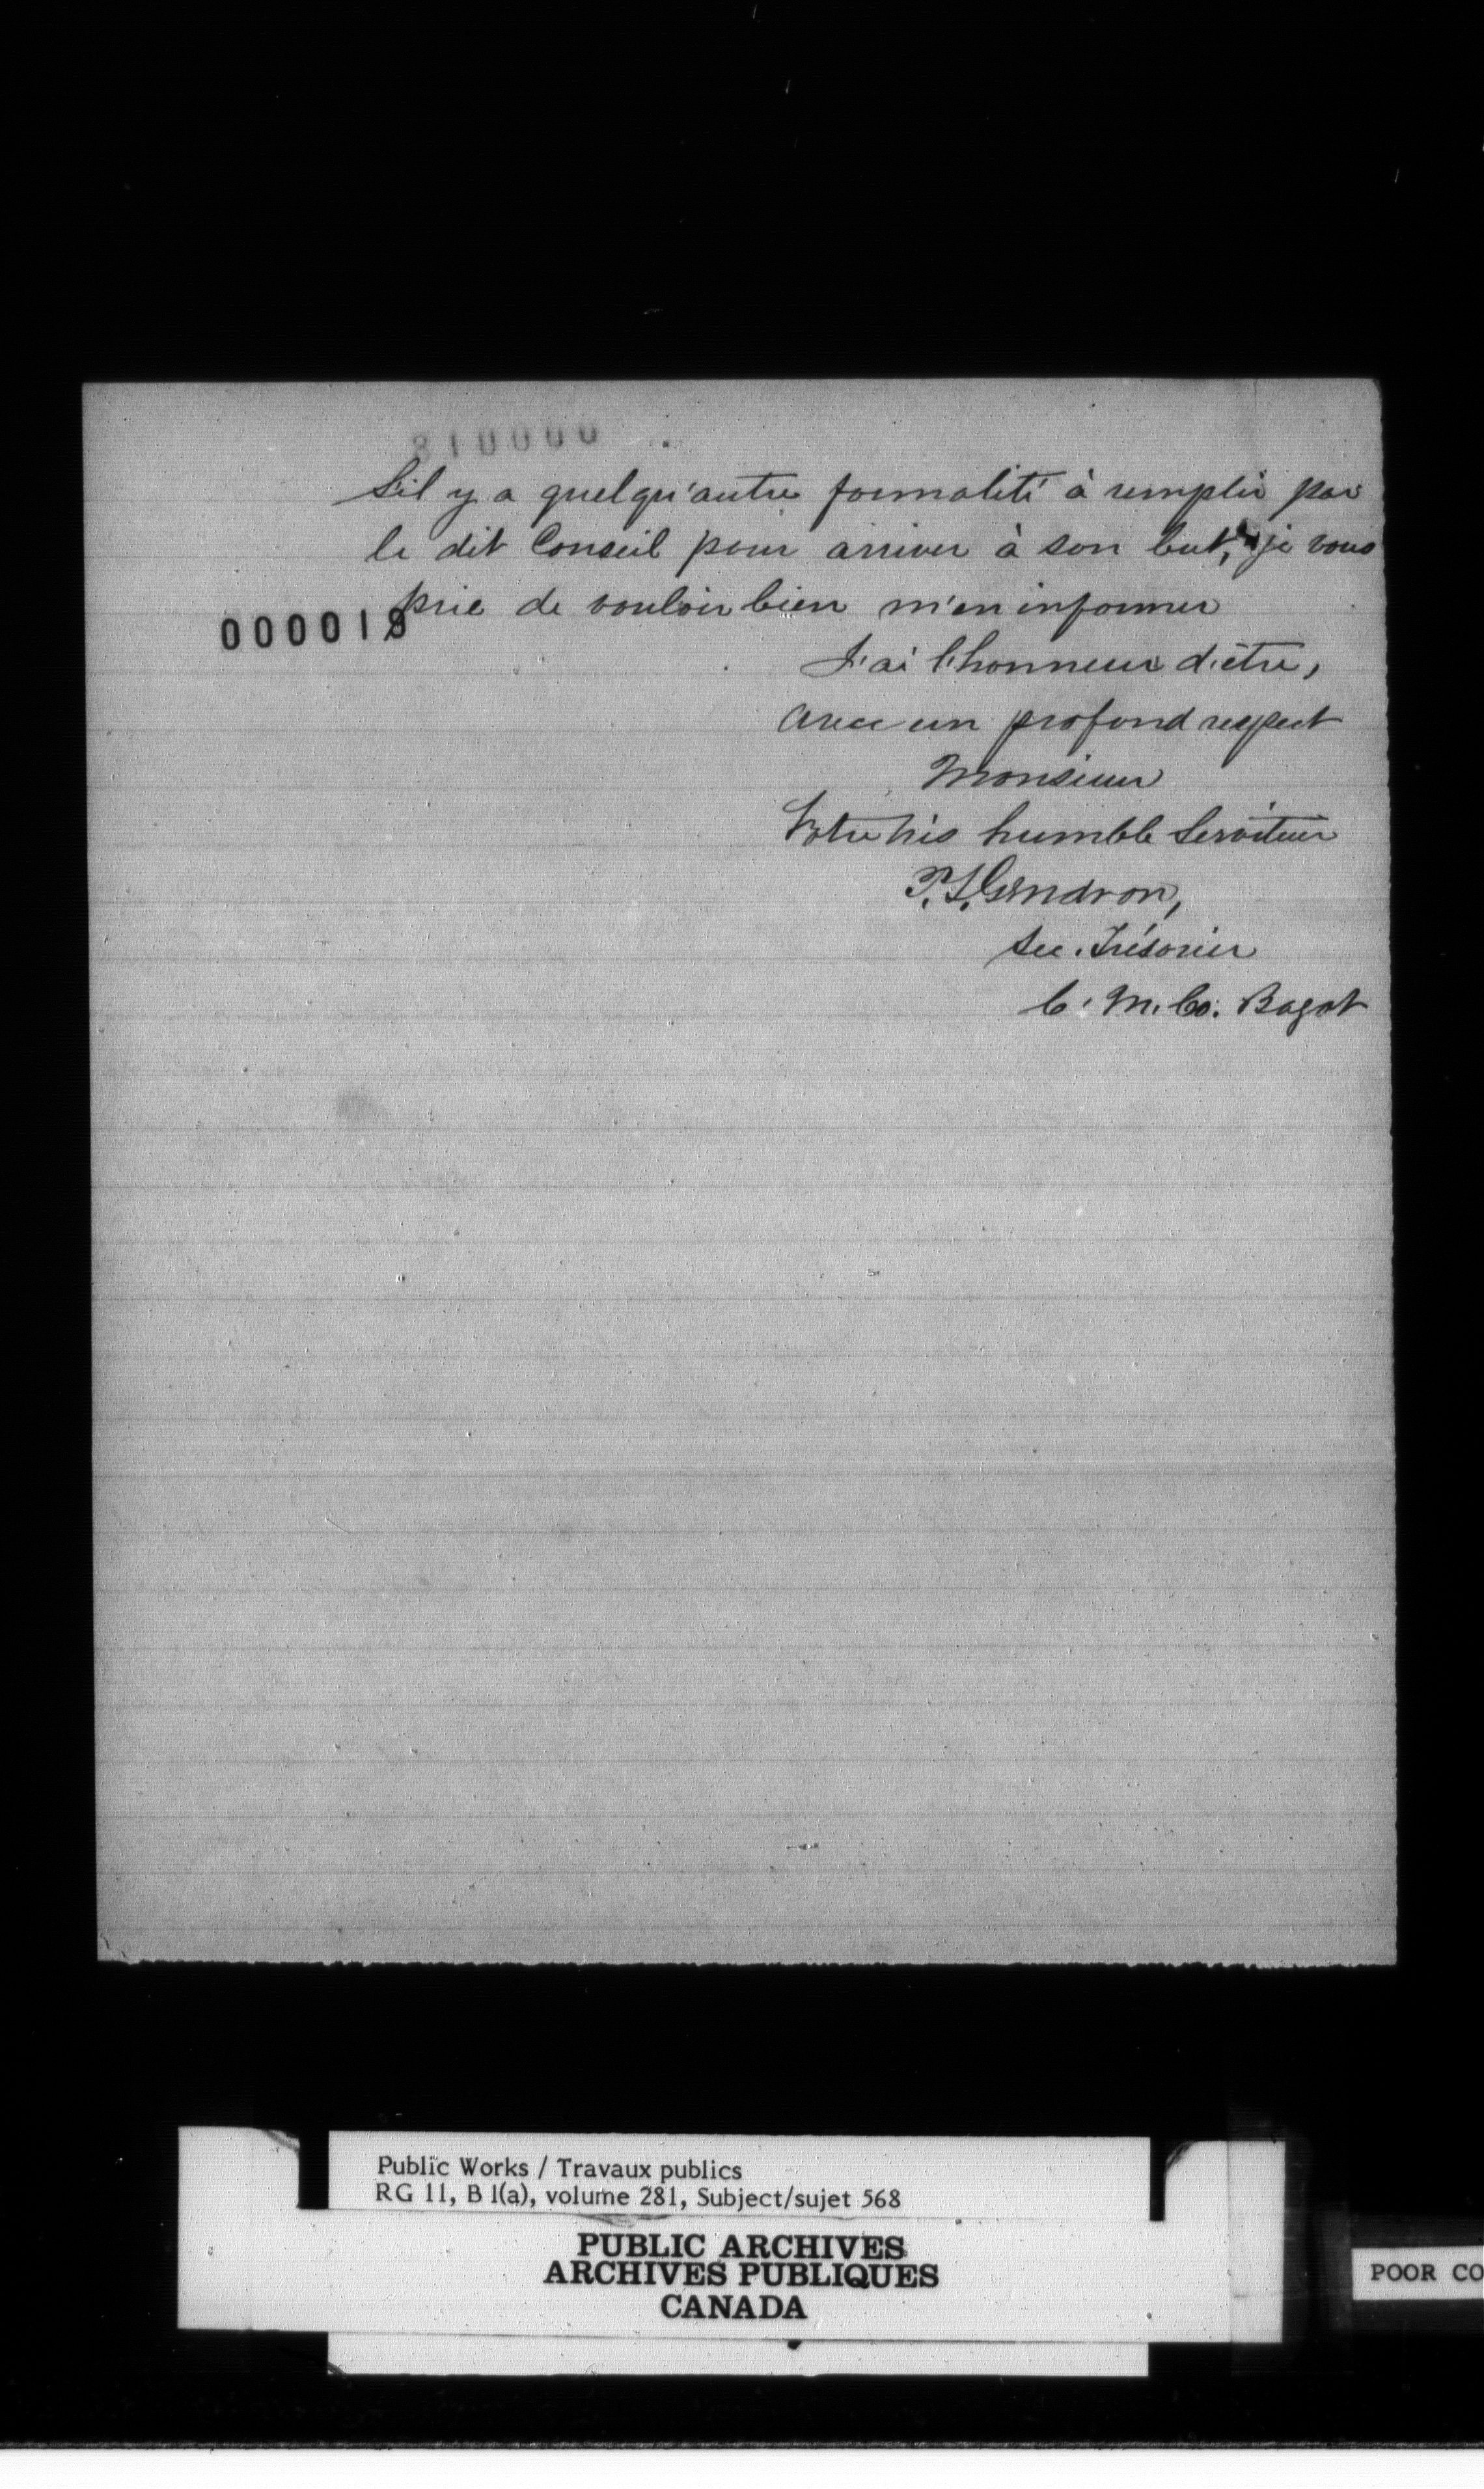 S'il y a quelqu'autre formalité à remplir par
le dit Conseil pour arriver à son but, je vous
prie de vouloir bien m'en informer
000018
J'ai l'honneur d'être,
avec un profond respect
Monsieur
Votre très humble Serviteur
P. S. Gendron,
Sec. Trésorier
C. M. Co. Bagot
Public Works / Travaux publics
RG 11, B 1(a), volume 281, Subject/sujet 568
PUBLIC ARCHIVES
ARCHIVES PUBLIQUES
CANADA
POOR CO